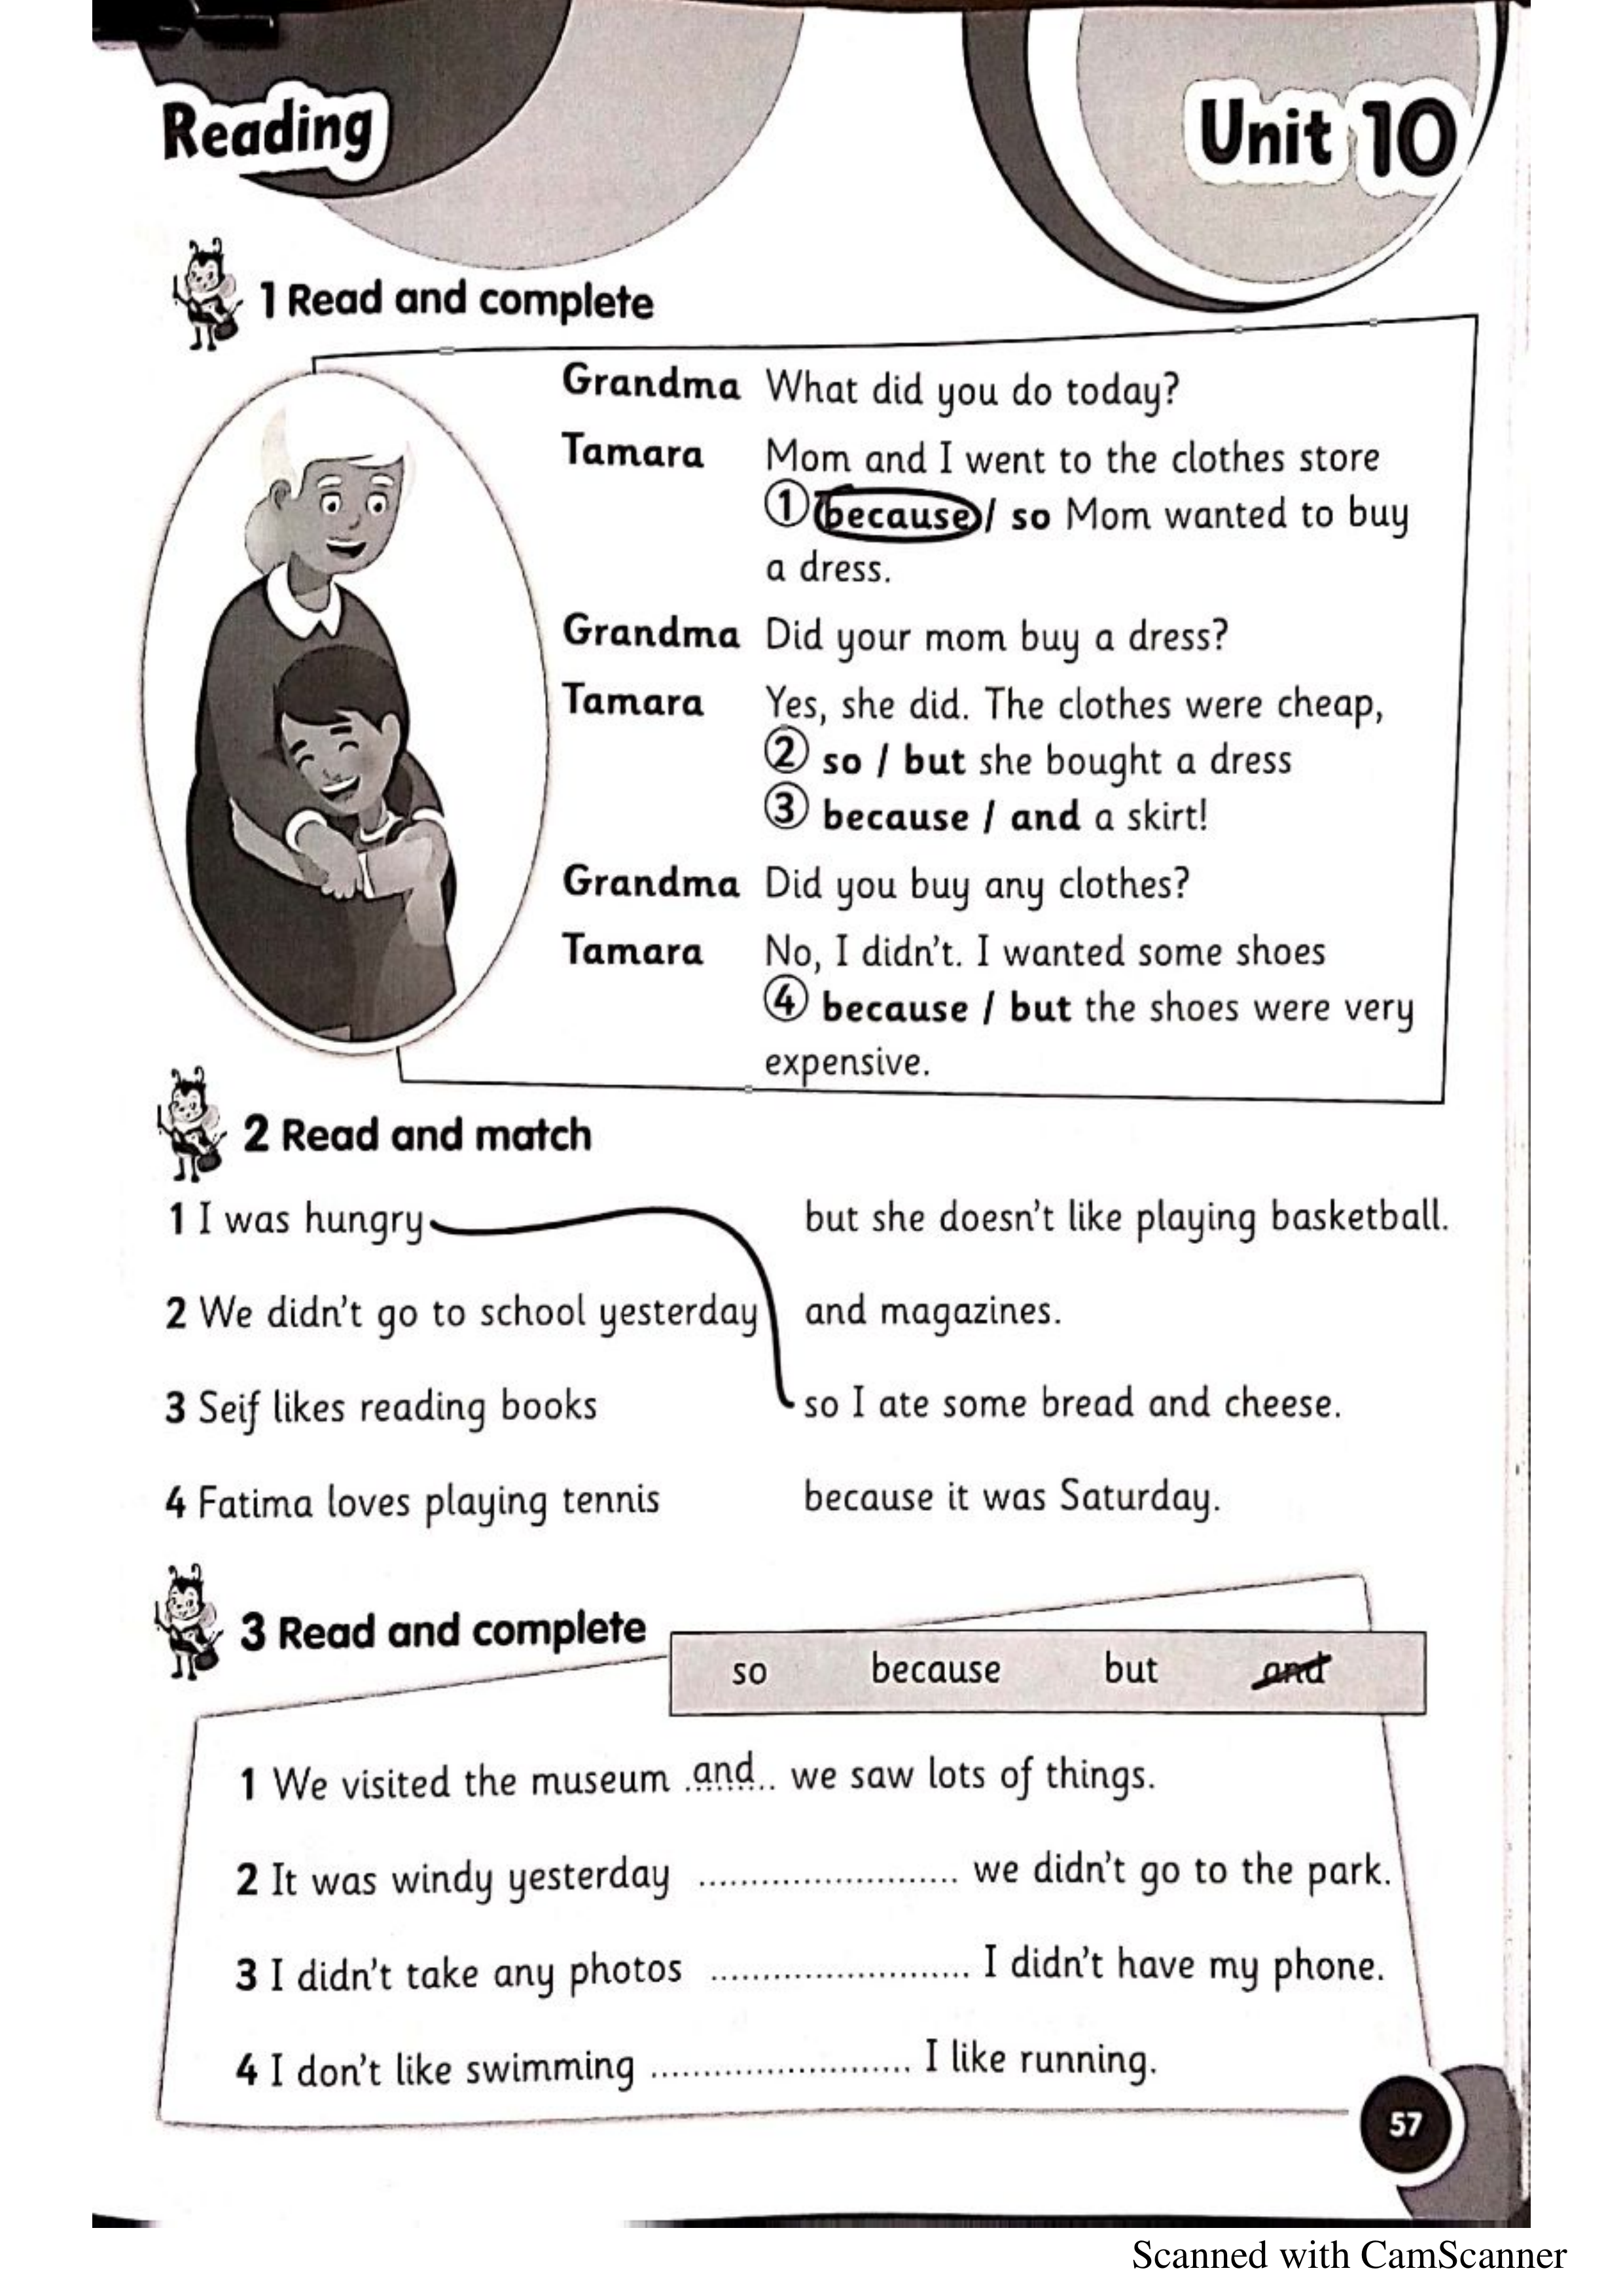 Reading
Unit 10
1 Read and complete
Grandma What did you do today?
Tamara Mom and I went to the clothes store
① because / so Mom wanted to buy
a dress.
Grandma Did your mom buy a dress?
Tamara Yes, she did. The clothes were cheap,
② so / but she bought a dress
③ because / and a skirt!
Grandma Did you buy any clothes?
Tamara No, I didn't. I wanted some shoes
④ because / but the shoes were very
expensive.
2 Read and match
1 I was hungry but she doesn't like playing basketball.
2 We didn't go to school yesterday and magazines.
3 Seif likes reading books so I ate some bread and cheese.
4 Fatima loves playing tennis because it was Saturday.
3 Read and complete
so because but and
1 We visited the museum .and.. we saw lots of things.
2 It was windy yesterday ......................... we didn't go to the park.
3 I didn't take any photos ......................... I didn't have my phone.
4 I don't like swimming ......................... I like running.
57
Scanned with CamScanner